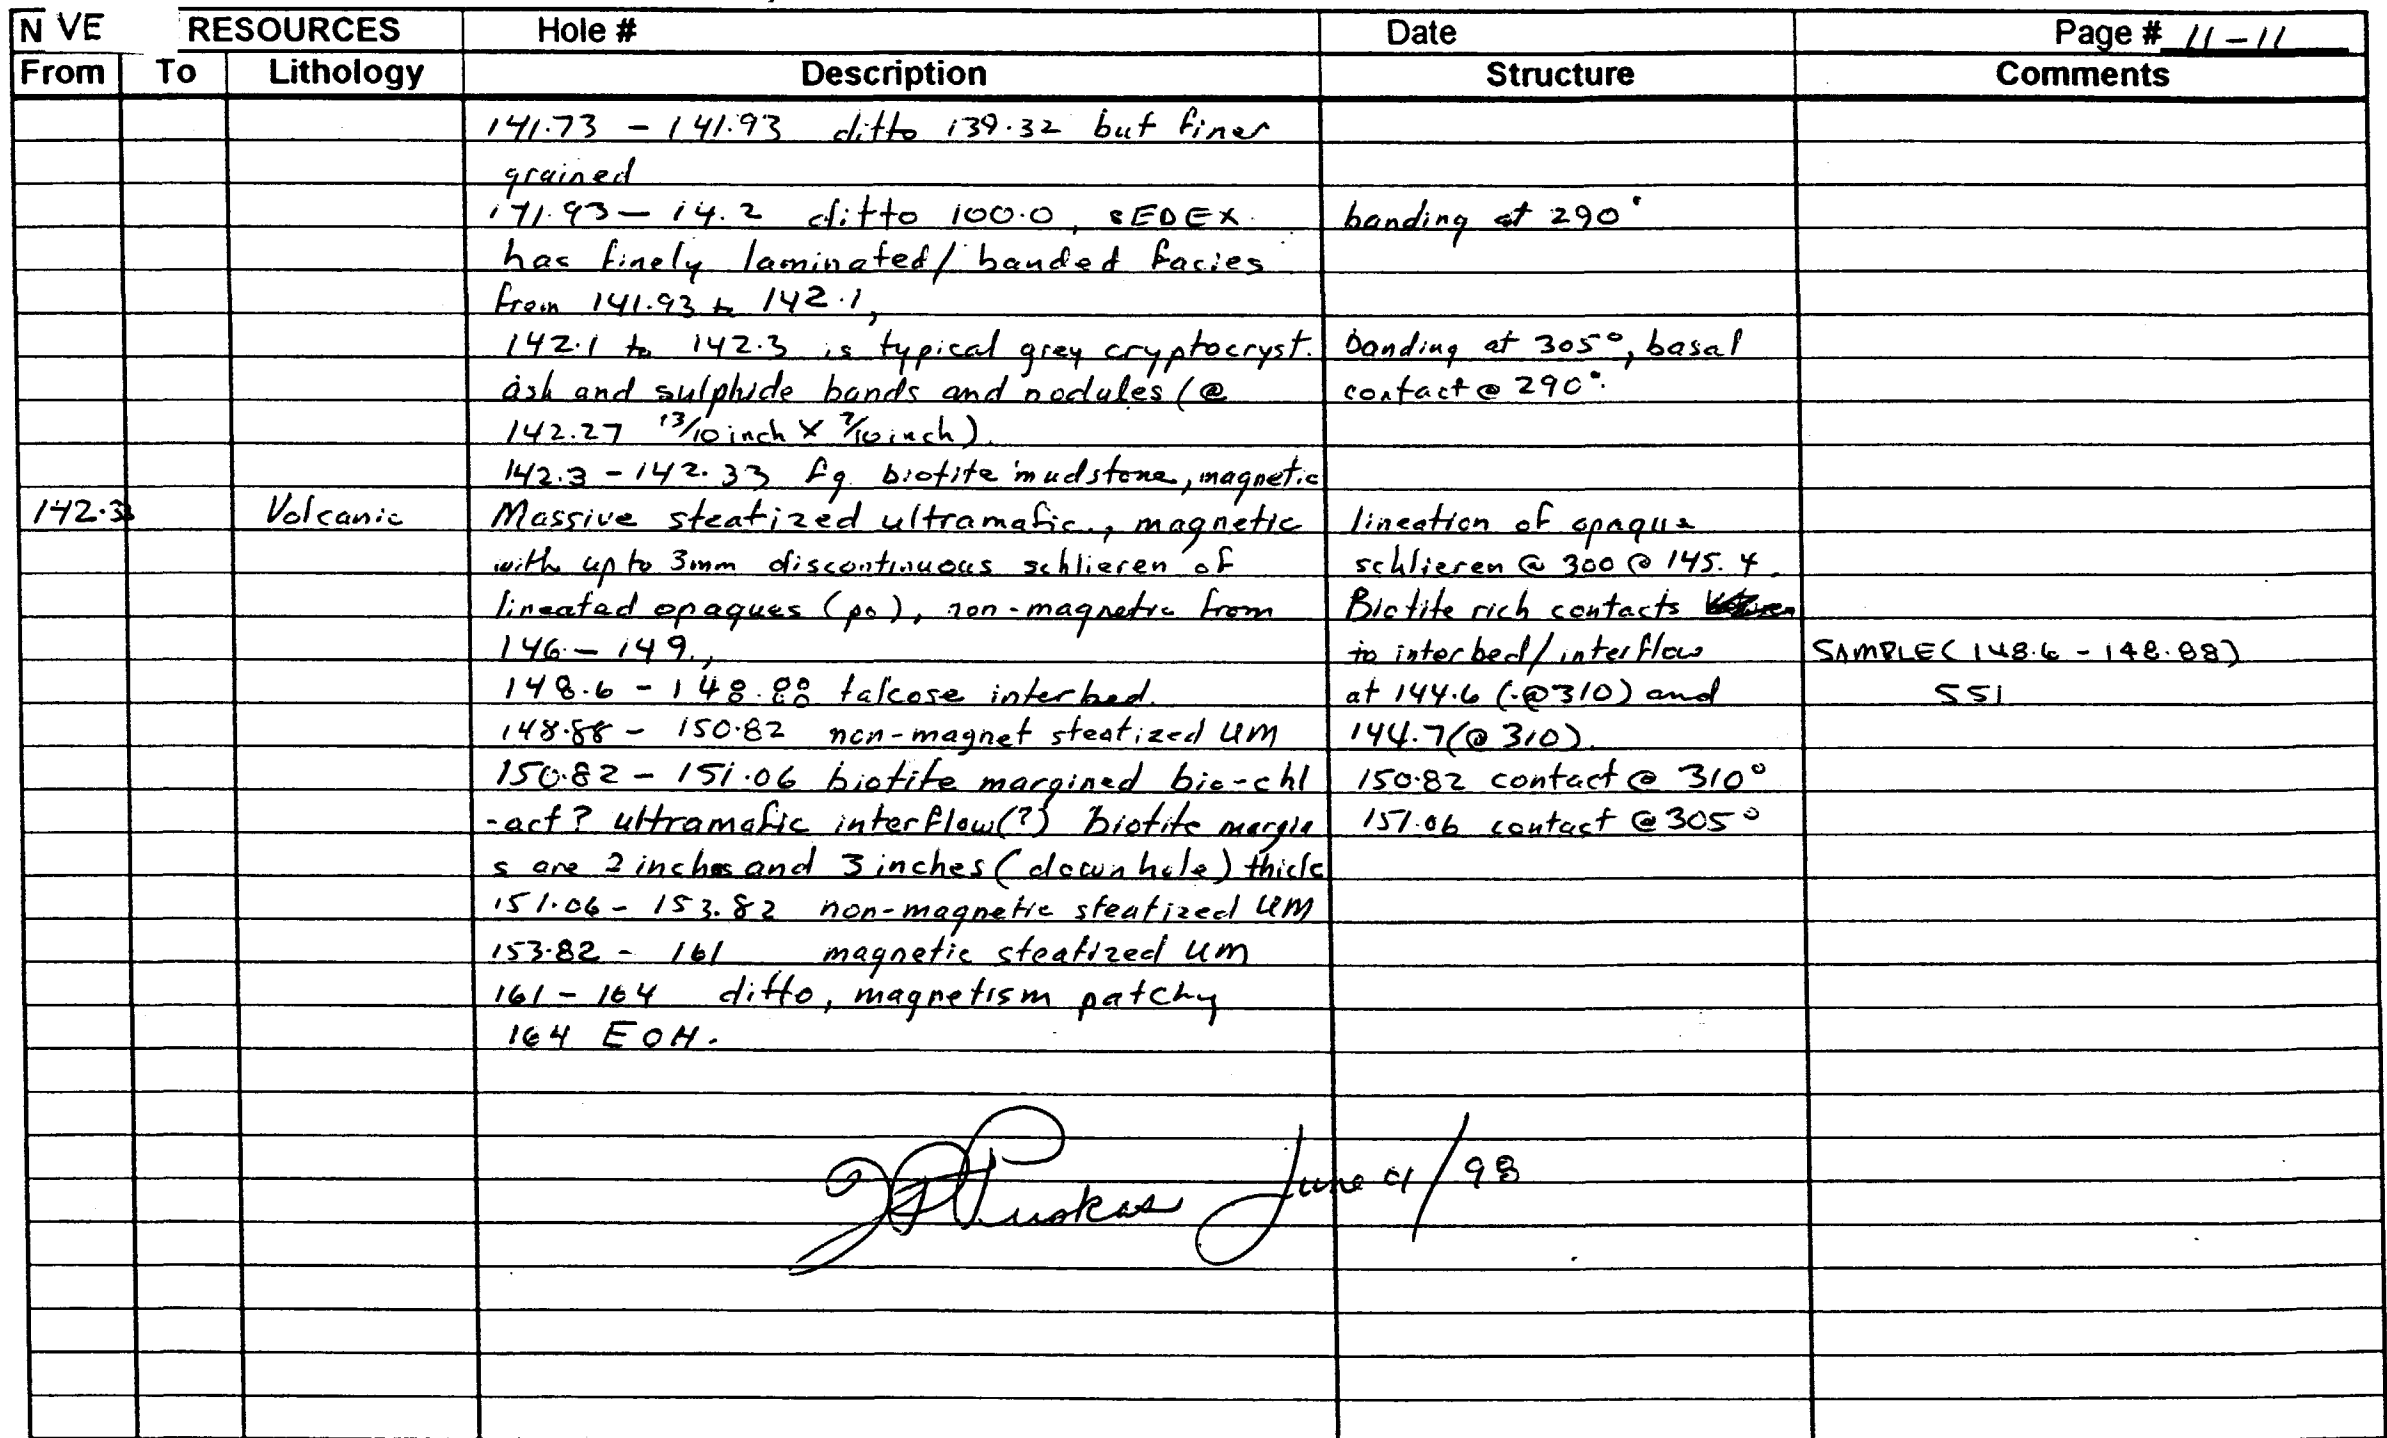 N VE RESOURCES Hole # Date Page # 11-11
From To Lithology Description Structure Comments
141.73 - 141.93 ditto 139.32 but finer
grained
141.93 - 14.2 ditto 100.0, SEDEX banding at 290°
has finely laminated/banded facies
from 141.93 to 142.1,
142.1 to 142.3 is typical grey cryptocryst. banding at 305°, basal
ash and sulphide bands and nodules (@ contact @ 290°.
142.27 13/10 inch X 7/10 inch).
142.3 - 142.33 fg. biotite mudstone, magnetic
142.33 Volcanic Massive steatized ultramafic., magnetic lineation of opaque
with up to 3mm discontinuous schlieren of schlieren @ 300 @ 145.4.
lineated opaques (po), non-magnetic from Biotite rich contacts
146 - 149., to interbed/interflow SAMPLE (148.6 - 148.88)
148.6 - 148.88 talcose interbed. at 144.6 (@310) and 551
148.88 - 150.82 non-magnet steatized UM 144.7 (@ 310).
150.82 - 151.06 biotite margined bio-chl 150.82 contact @ 310°
-act? ultramafic interflow(?) Biotite margin 151.06 contact @ 305°
s are 2 inches and 3 inches (down hole) thick
151.06 - 153.82 non-magnetic steatized UM
153.82 - 161 magnetic steatized UM
161 - 164 ditto, magnetism patchy
164 EOH.
Puskas June 01/98